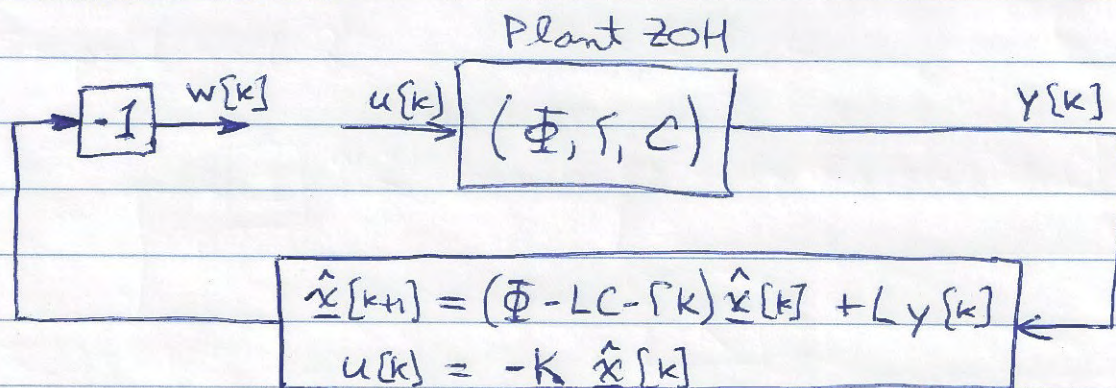 Plant ZOH
-1
w[k]
u[k]
(Φ, Γ, C)
y[k]
x̂[k+1] = (Φ - LC - ΓK) x̂[k] + L y[k]
u[k] = -K x̂[k]